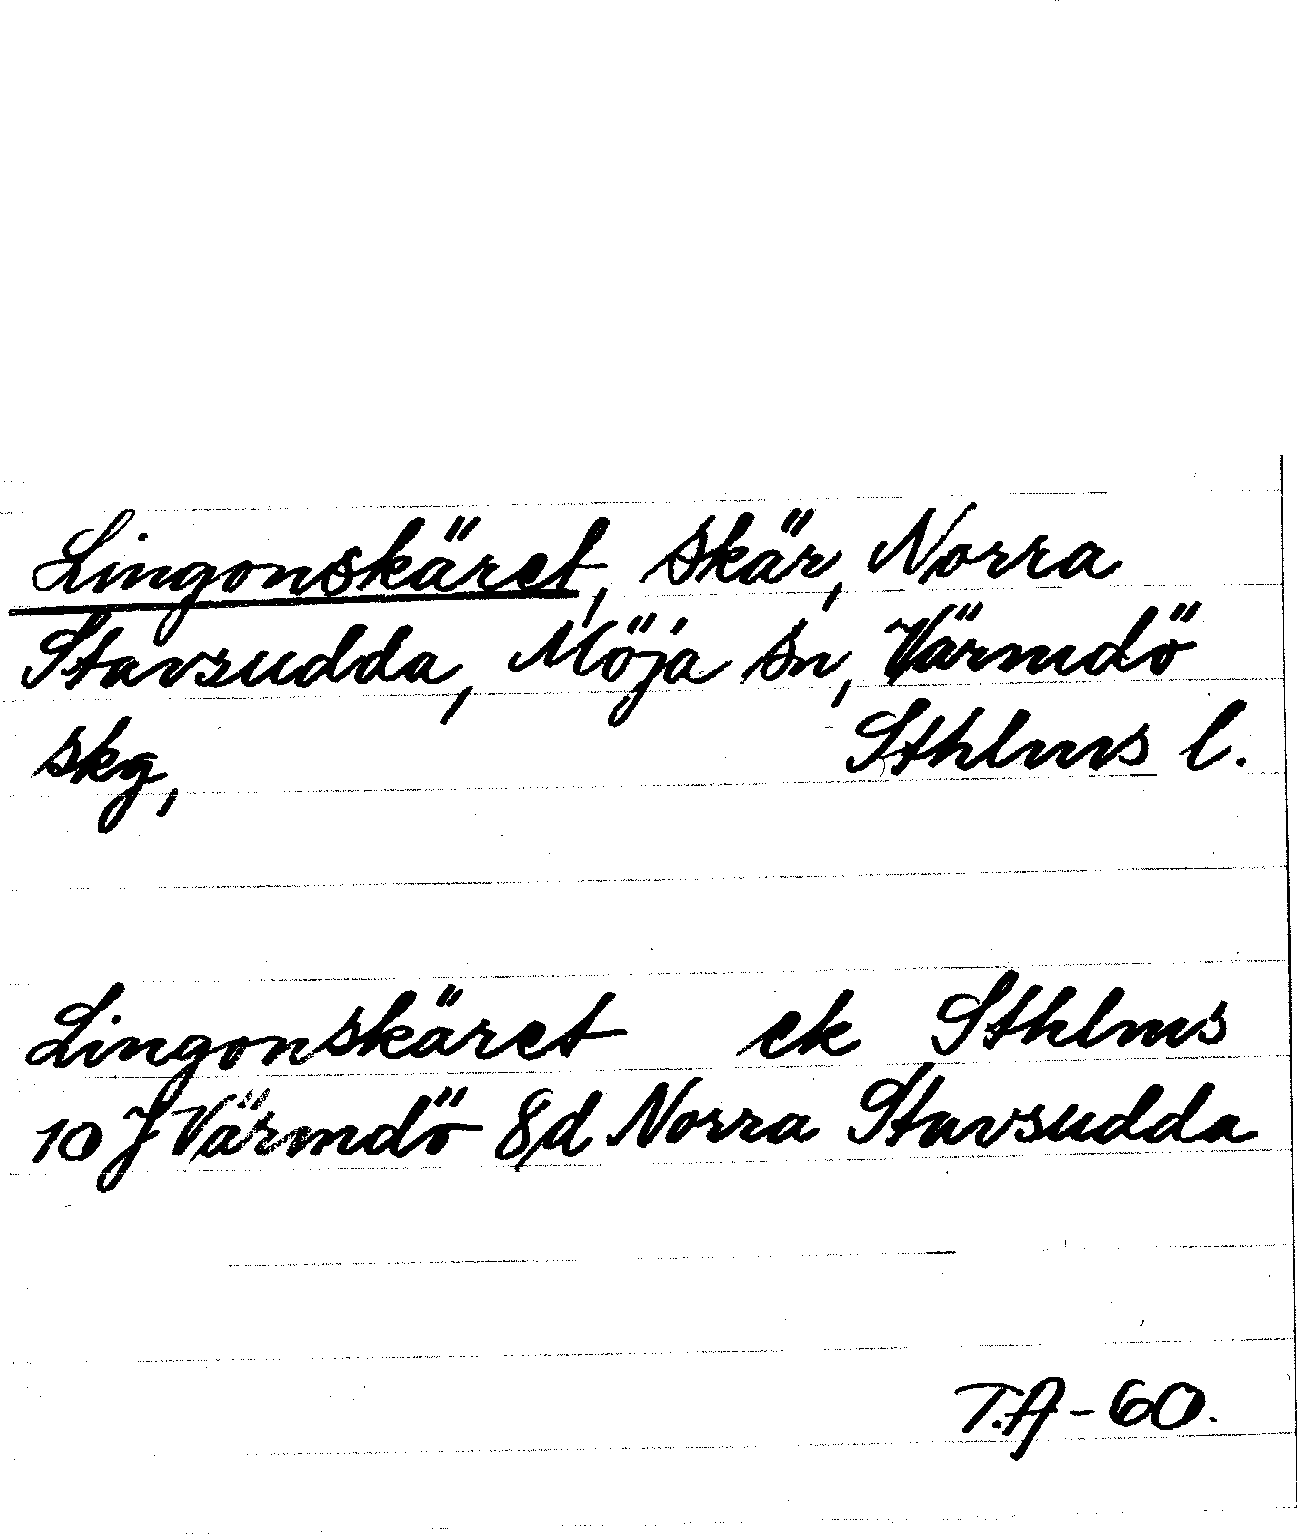 Lingonskäret, skär, Norra
Stavsudda, Möja sn, Värmdö
skg, Sthlms l.
Lingonskäret ek Sthlms
10 J Värmdö 8d Norra Stavsudda
T.A-60.